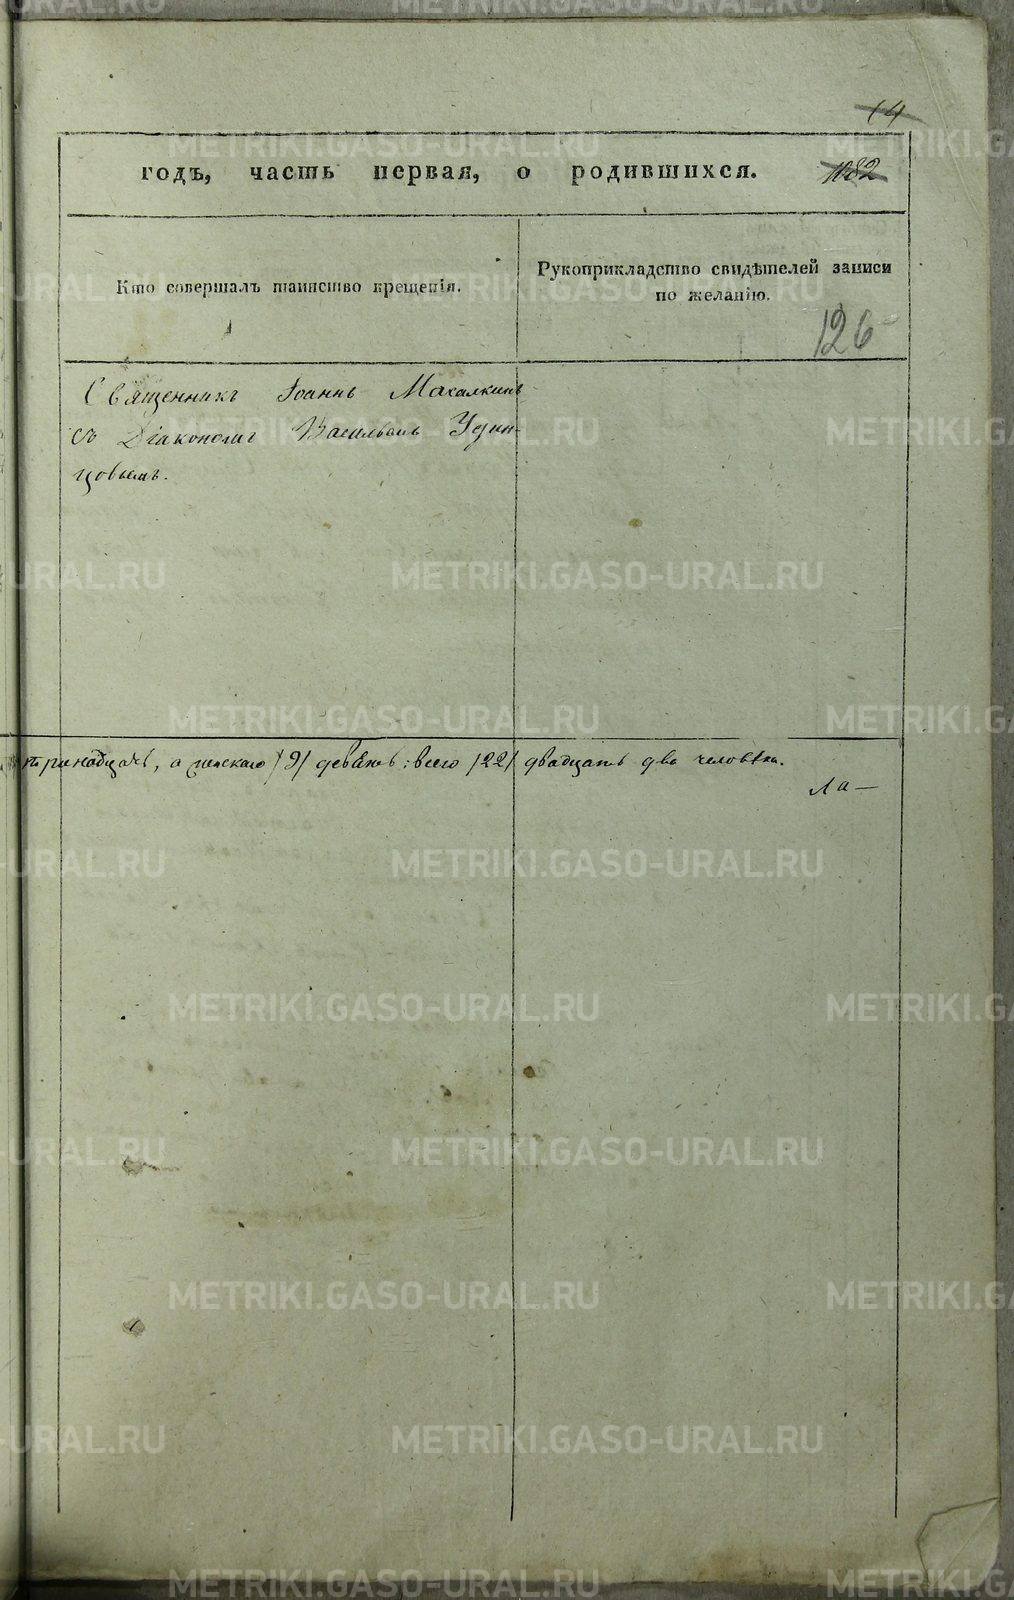 14
годъ, часть первая, о родившихся. 1082
Кто совершалъ таинство крещенія.
Рукоприкладство свидѣтелей записи
по желанію.
126
Священникъ Іоаннъ Махалкинъ
съ Діакономъ Васильемъ Удин-
цовымъ.
тринадцать, а женскаго /9/ девять; всего /22/ двадцать два человѣка.
ла—
METRIKI.GASO-URAL.RU